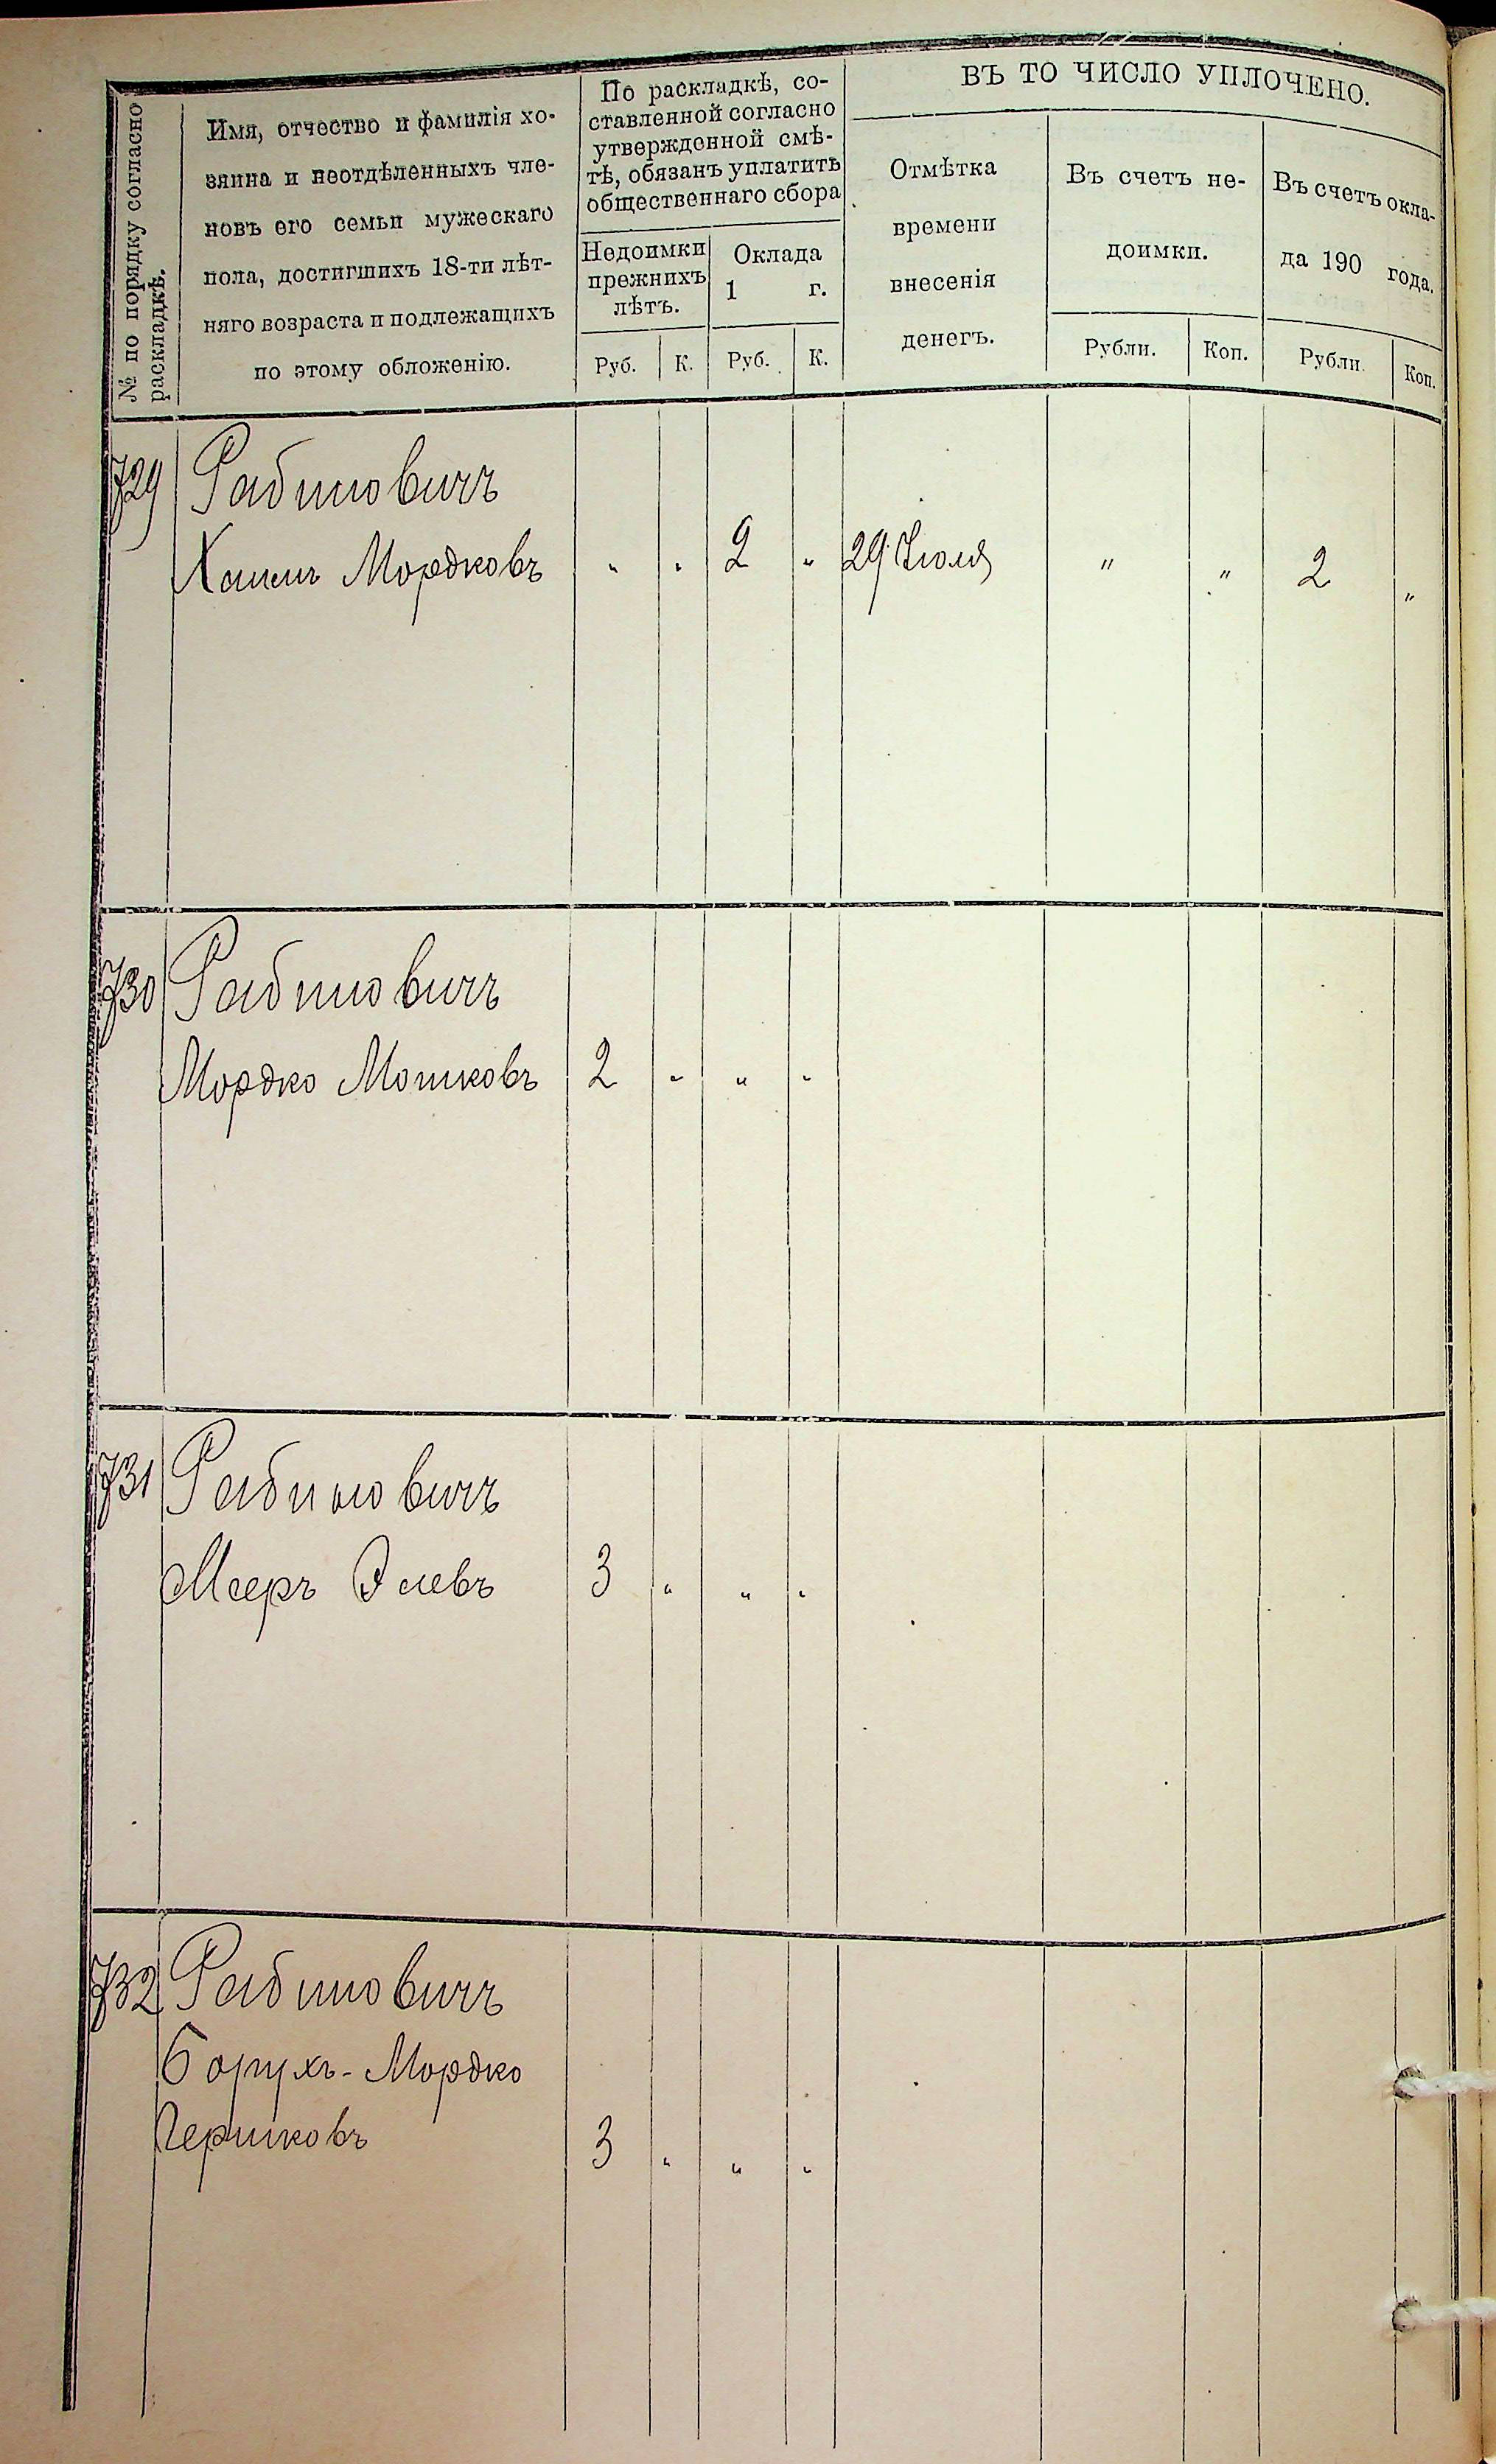 № по порядку согласно
раскладкѣ.
Имя, отчество и фамилія хо-
зяина и неотдѣленныхъ чле-
новъ его семьи мужескаго
пола, достигшихъ 18-ти лѣт-
няго возраста и подлежащихъ
по этому обложенію.
По раскладкѣ, со-
ставленной согласно
утвержденной смѣ-
тѣ, обязанъ уплатить
общественнаго сбора
Недоимки
прежнихъ
лѣтъ.
Оклада
1 г.
Руб. К. Руб. К.
ВЪ ТО ЧИСЛО УПЛОЧЕНО.
Отмѣтка
времени
внесенія
денегъ.
Въ счетъ не-
доимки.
Рубли. Коп.
Въ счетъ окла-
да 190 года.
Рубли. Коп.
729 Рабиновичъ
Мордковъ „ „ 2 „ 29 Іюля „ „ 2 „
730 Рабиновичъ
Мордко Мошковъ 2 „ „ „
731 Рабиновичъ
Мееръ Элевъ 3 „ „ „
732 Рабиновичъ
Борухъ-Мордко
Гершковъ 3 „ „ „